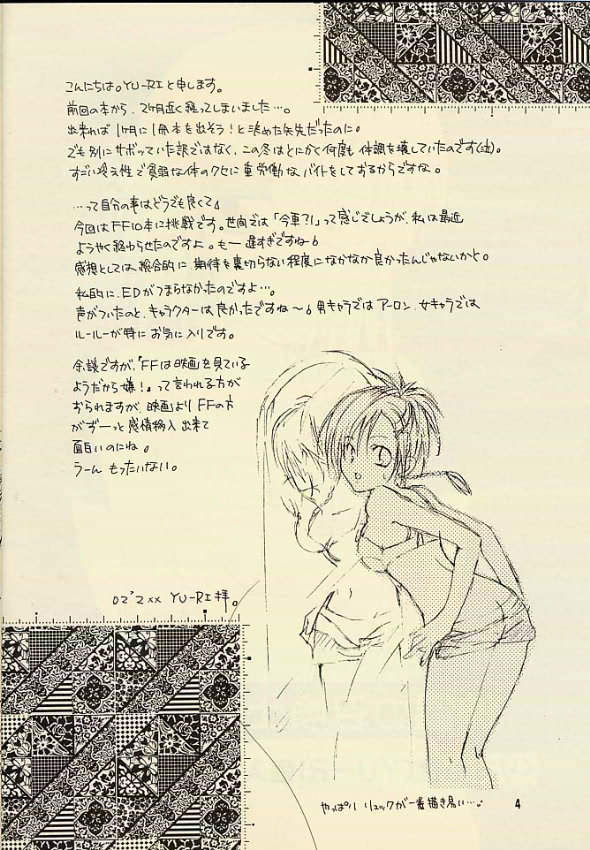 こんにちは。YU-RIと申します。
前回の本から、2ヶ月近く経ってしまいました…。
出来れば1ヶ月に1冊本を出そう！と決めた矢先だったのに。
でも別にサボッていた訳ではなく、この冬はとにかく何度も体調を壊していたのです(泣)。
すごい冷え性で貧弱な体のクセに重労働なバイトをしておるからですな。
…って自分の事はどうでも良くて
今回はFF10本に挑戦です。世間では「今更？！」って感じでしょうが、私は最近
ようやく終わらせたのですよ。もー遅すぎですね
感想としては、総合的に期待を裏切らない程度になかなか良かったんじゃないかと。
私的に、EDがつまらなかったのですよ…。
声がついたのと、キャラクターは良かったですね〜。男キャラではアーロン、女キャラでは
ルールーが特にお気に入りです。
余談ですが、「FFは映画を見ている
ようだから嫌！」って言われる方が
おられますが、映画よりFFの方
がずーっと感情移入出来て
面白いのにね。
うーん もったいない。
02'2xx YU-RI拝。
やっぱりリュックが一番描き易い…。
4